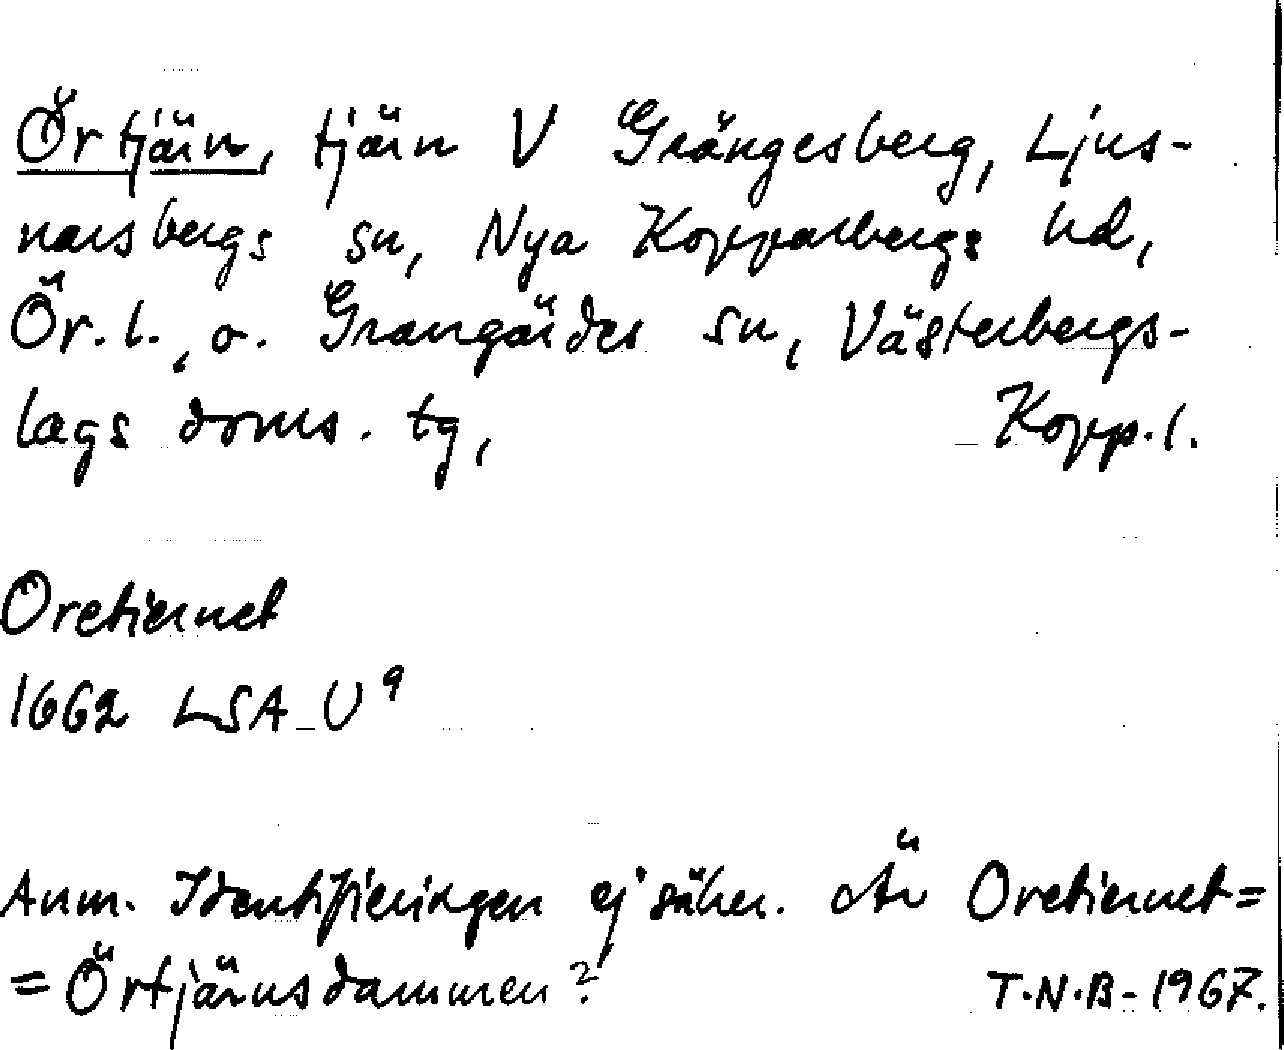 Örtjärn, tjärn V Grängesberg, Ljus-
narsbergs sn, Nya Kopparbergs hd,
Ör. l., o. Grangärdes sn, Västerbergs-
lags doms. tg, Kopp. l.
Oretiernet
1662 LSA U⁹
Anm. Identifieringen ej säker. Är Oretiernet =
= Örtjärnsdammen?
T.N.B. - 1967.